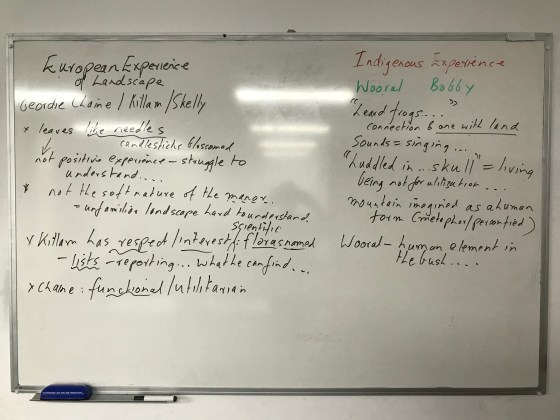 European Experience
of Landscape
Geordie Chaine / Killam / Skelly
* leaves like needles
candlesticks blossomed
not positive experience - struggle to
understand....
* not the soft nature of the manor..
= unfamiliar landscape hard to understand
scientific
x Killam has respect / interest: floras named
- lists - reporting... what he can find...
x Chaine: functional / utilitarian
Indigenous Experience
Wooral Bobby
"Heard frogs...."
connection & one with land
Sounds = singing...
"Huddled in ... skull" = living
being not for utilisation...
mountain imagined as a human
form (metaphor/personified)
Wooral - human element in
the bush....